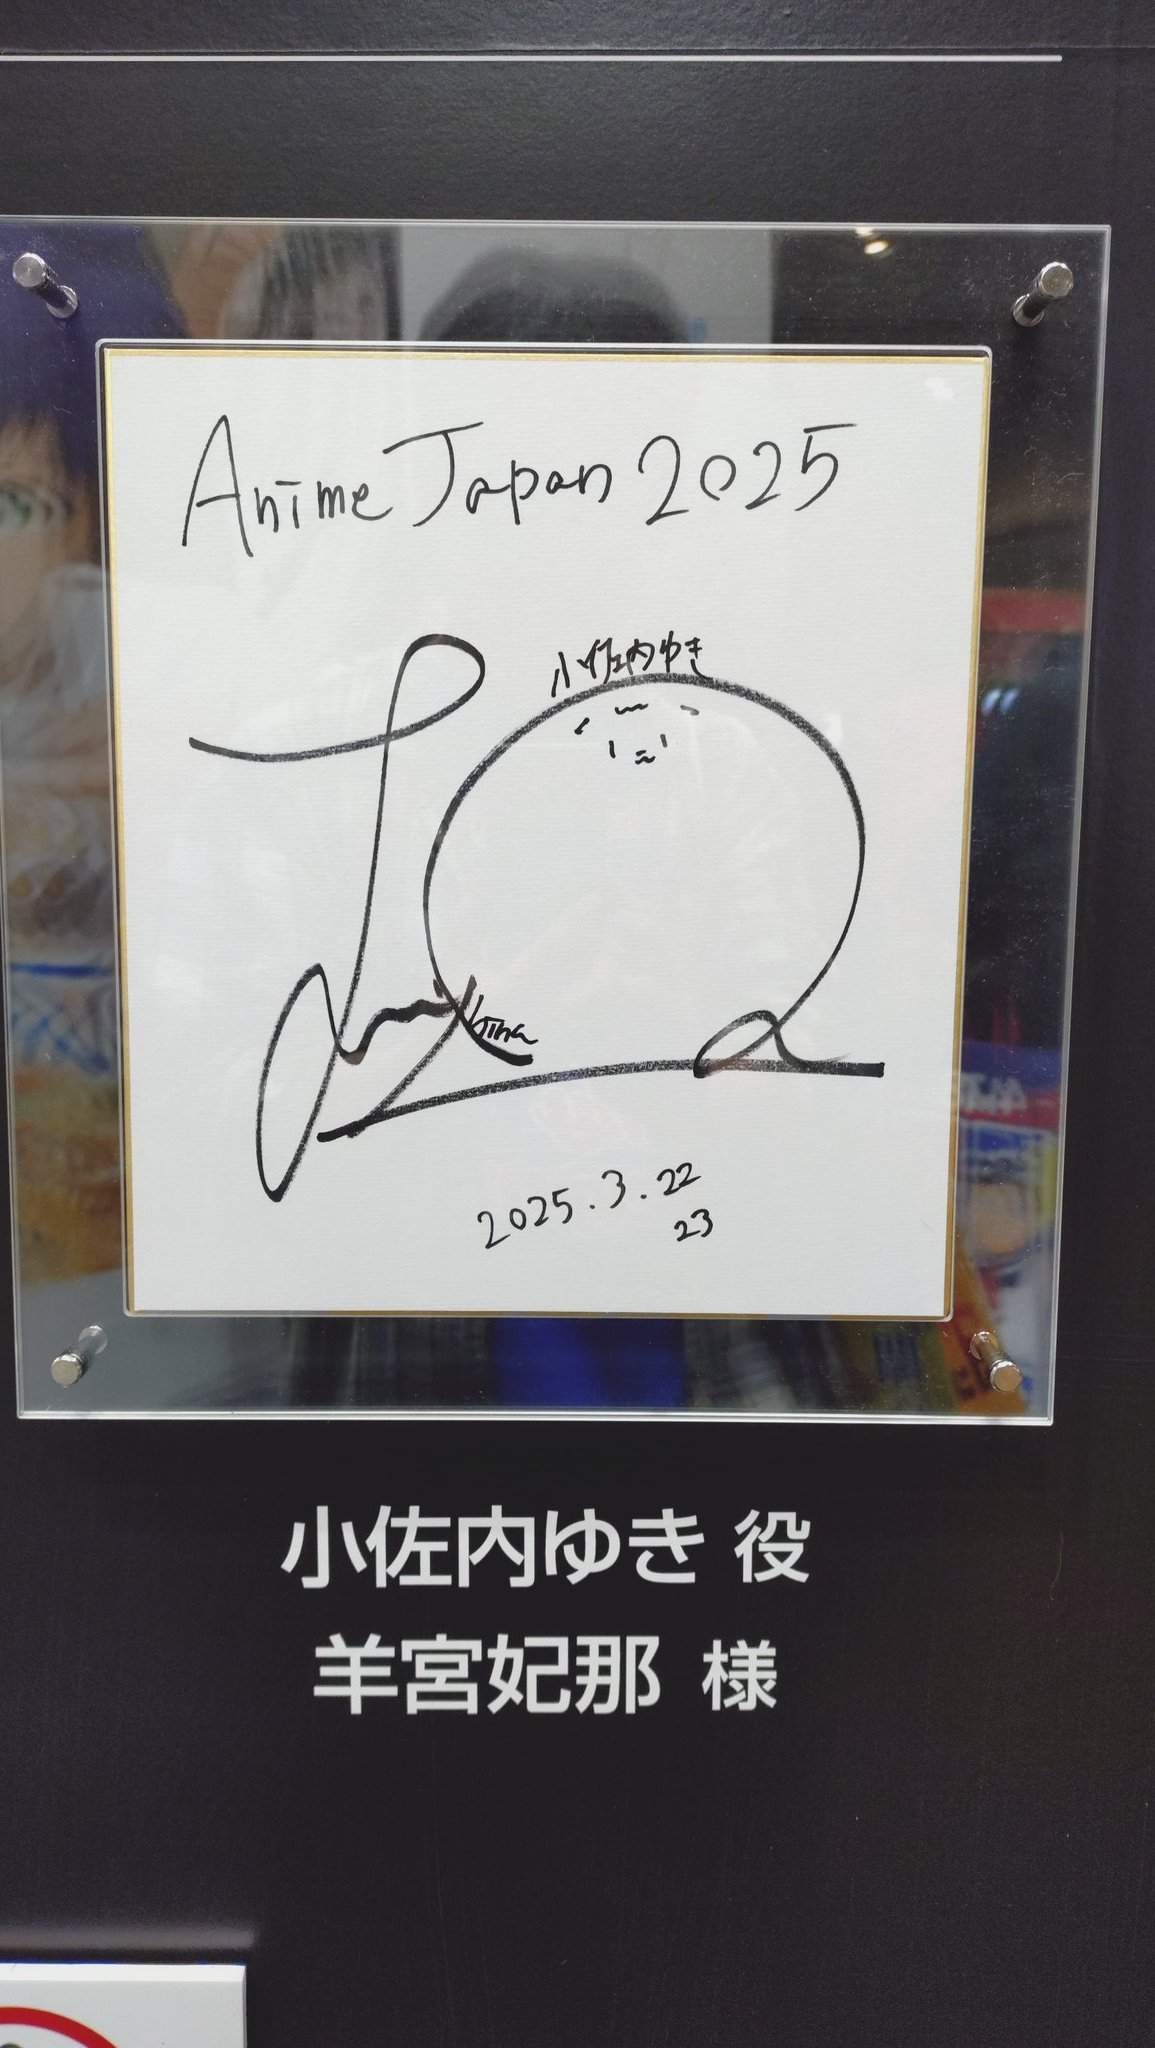 Anime Japan 2025
小佐内ゆき
Hina
2025.3.22
23
小佐内ゆき 役
羊宮妃那 様